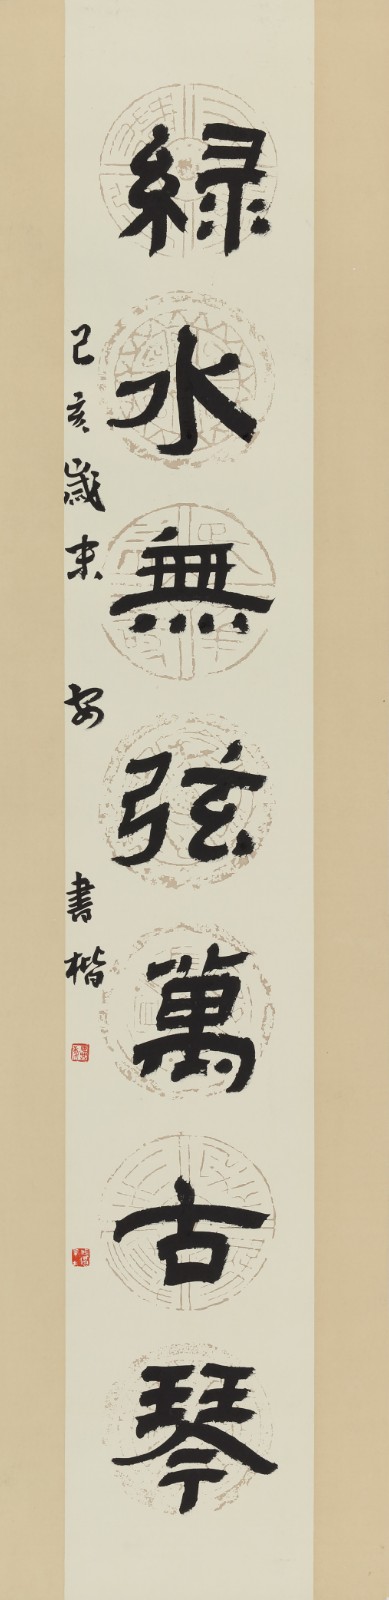 綠水無弦萬古琴
己亥歲末 安 書楷